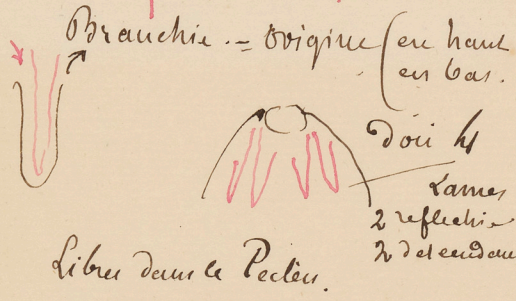 Branchie. = Origine (en haut
en bas.
d'où 4
Lames
2 reflechie
2 descendan
Libres dans le Pecten.